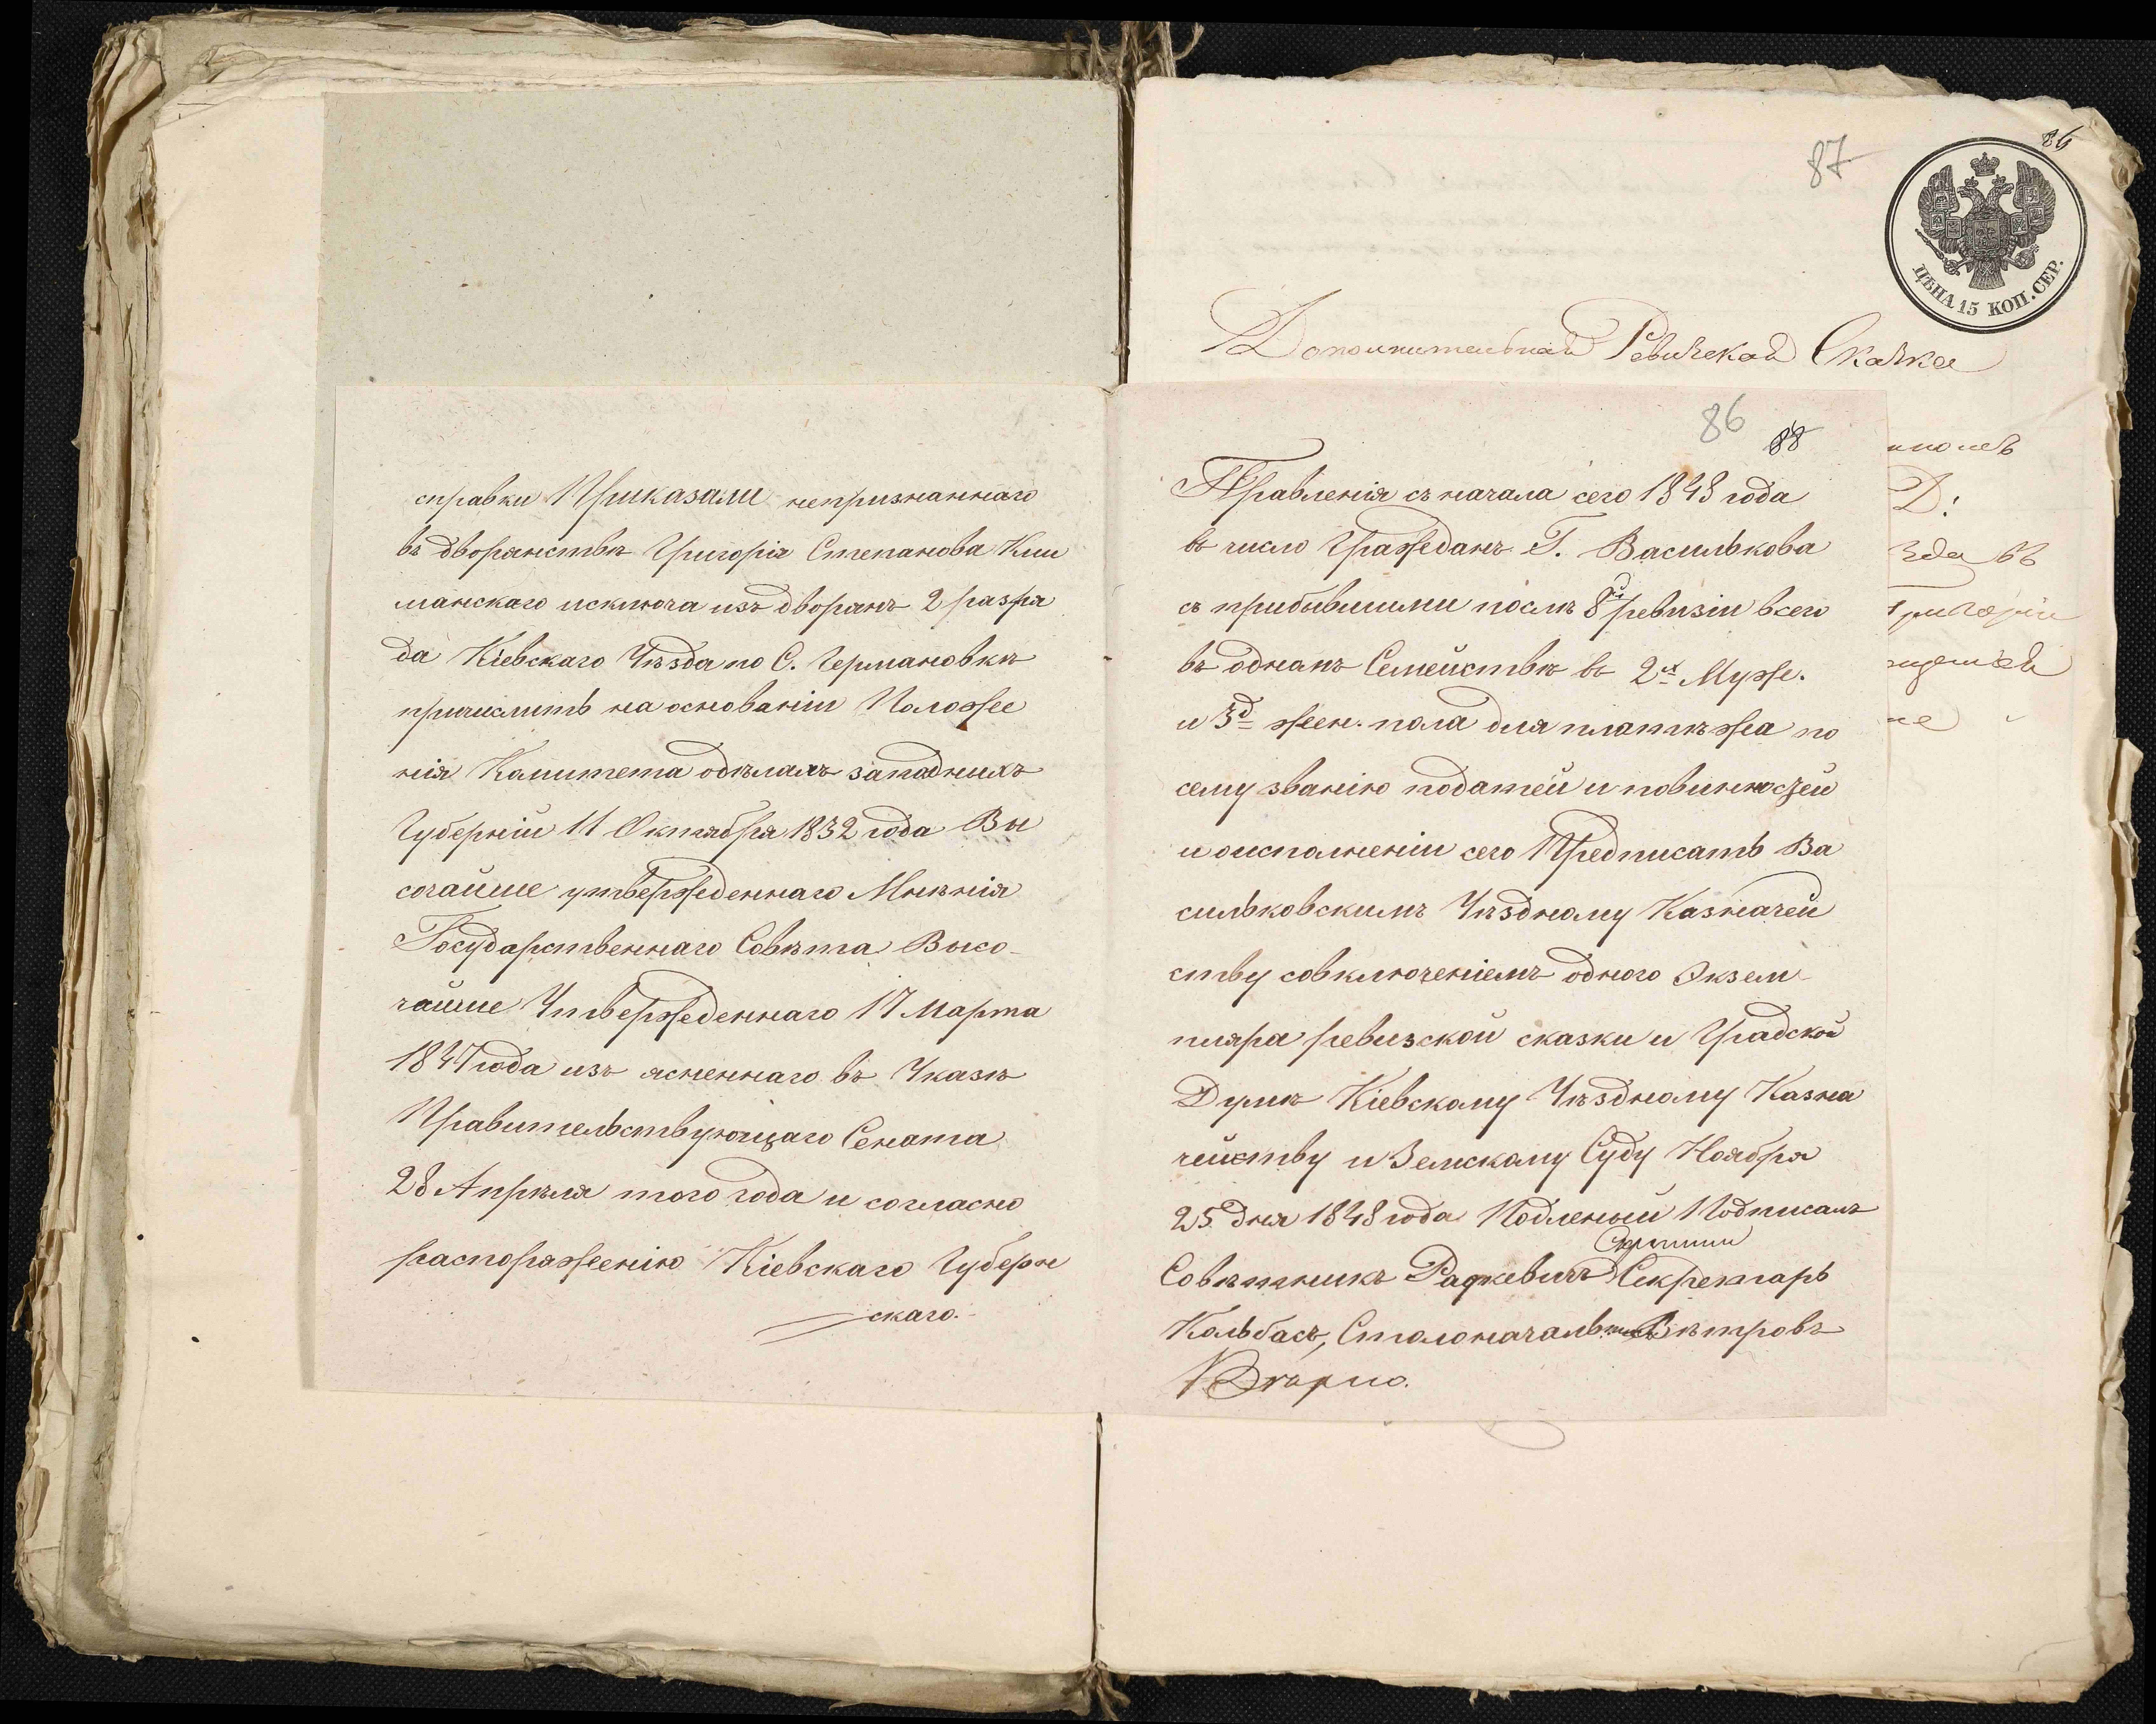 справки Приказали непризнаннаго
въ дворянствѣ Григорія Степанова Кли
манскаго исключа изъ дворянъ 2 разря
да Кіевскаго Уѣзда по С. Германовкѣ
причислить на основаніи Положе
нія Камитета одѣлахъ западныхъ
Губерній 11 Октября 1832 года Вы
сочайше утвержденнаго Мнѣнія
Государственнаго Совѣта Высо-
чайше Утвержденнаго 17 Марта
1847 года изъ ясненнаго въ Указѣ
Правительствующаго Сената
28 Апрѣля того года и согласно
распоряженію Кіевскаго Губерн
скаго.
87
86
ЦѢНА 15 КОП. СЕР.
Дополнительная Ревизская Сказка
86 88
Правленія съ начала сего 1848 года
въ число Гражданъ Г. Василькова
съ прибывшими послѣ 8й ревизіи всего
въ однамъ Семействѣ въ 2х Муже.
и 3д жен. пола для платѣжа по
сему званію податей и повинностей
и оисполненіи сего Предписать Ва
сильковскимъ Уѣздному Казначей
ству совключеніемъ одного Экзем-
пляра ревизской сказки и Градской
Думѣ Кіевскому Уѣздному Казна
чейству и Земскому Суду Ноября
25 дня 1848 года Подленый Подписалъ
Скрепили
Совѣтникъ Радкевичъ Секретарь
Кольбасъ, Столоначальникъ Вѣтровъ
Вѣрно.
D!
зда въ